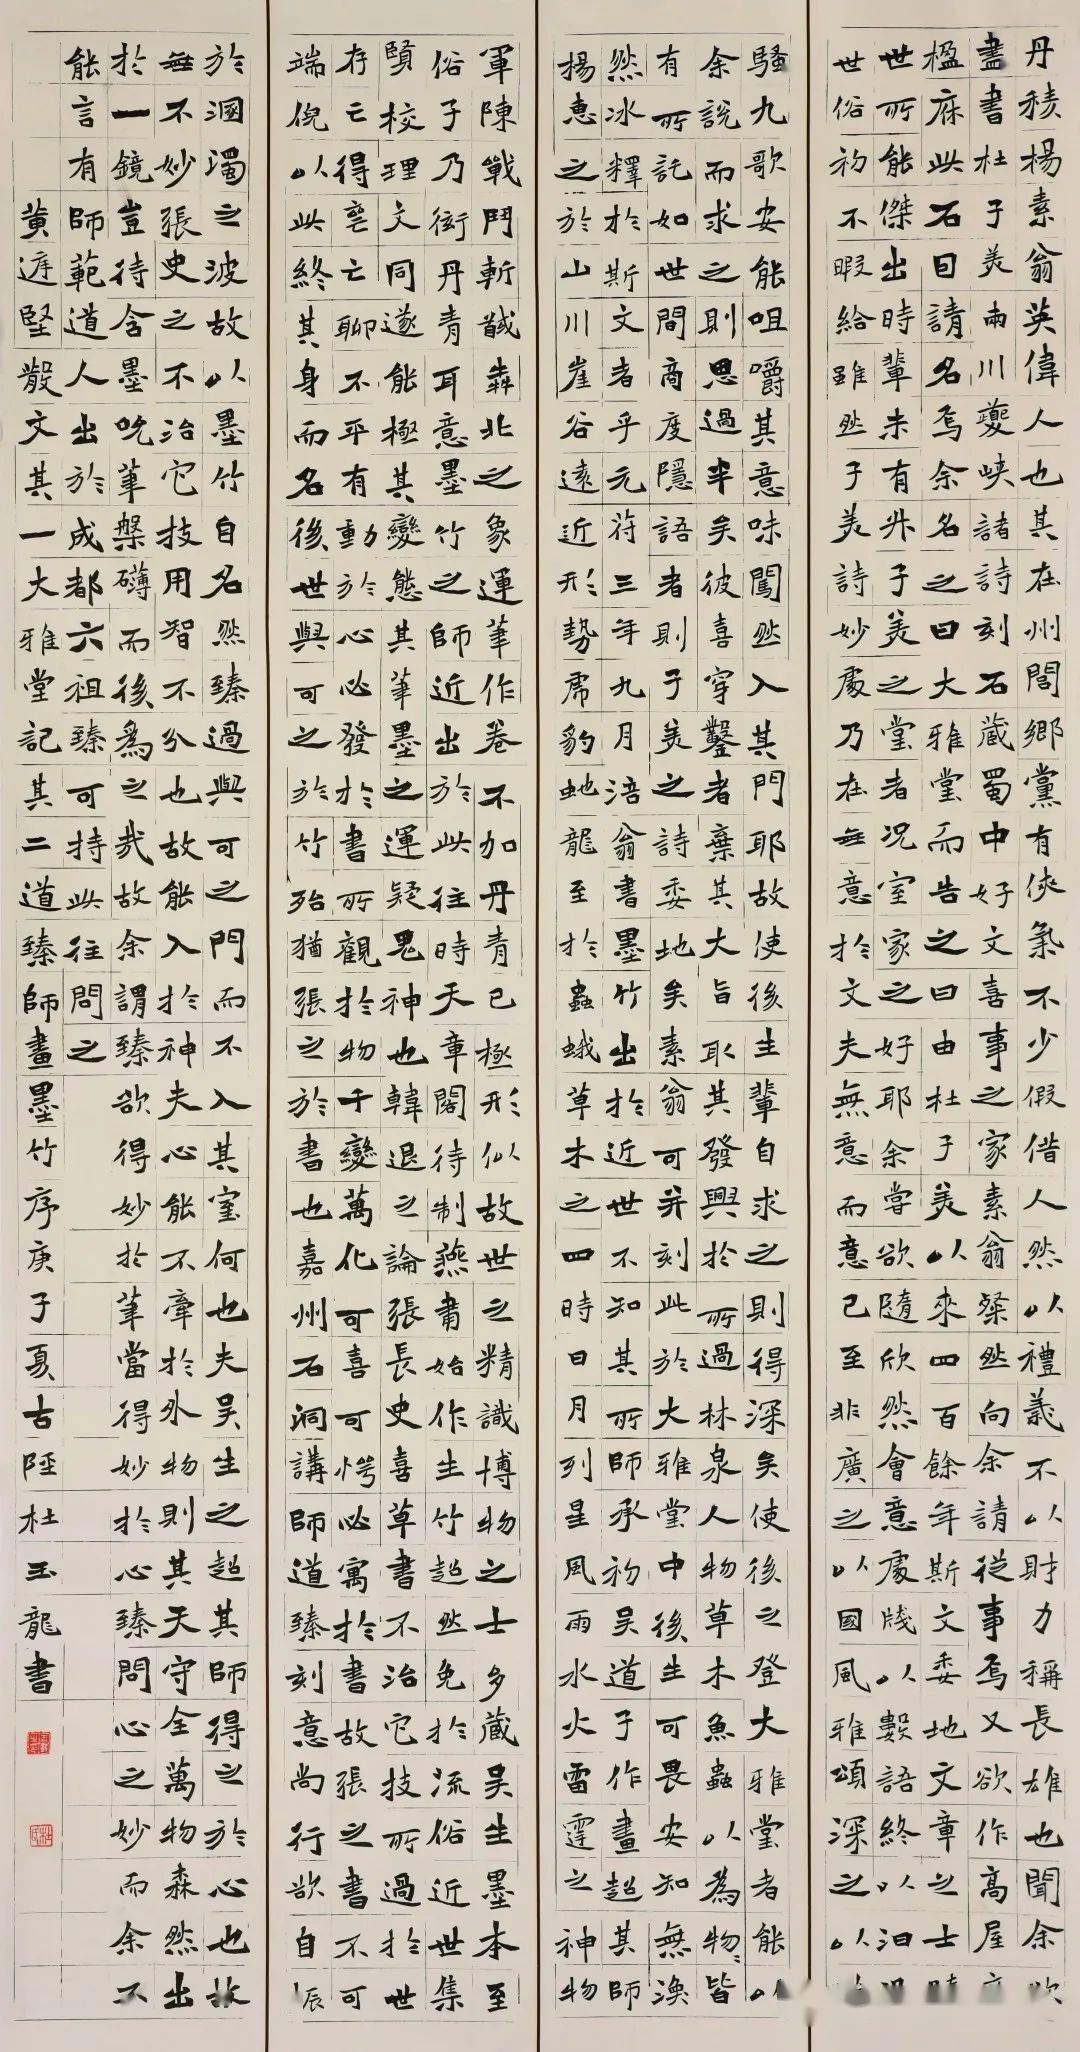 丹稜楊素翁英偉人也其在州閭鄉黨有俠氣不少假借人然以禮義不以財力稱長雄也聞余欲
盡書杜子美兩川夔峽諸詩刻石藏蜀中好文喜事之家素翁粲然向余請從事焉又欲作高屋
楹庥此石因請名焉余名之曰大雅堂而告之曰由杜子美以來四百餘年斯文委地文章之士
世所能傑出時輩未有升子美之堂者況室家之好耶余嘗欲隨欣然會意處牋以數語終以汩
世俗初不暇給雖然子美詩妙處乃在無意於文夫無意而意已至非廣之以國風雅頌深之以
騷九歌安能咀嚼其意味闖然入其門耶故使後生輩自求之則得深矣使後之登大雅堂者能以
余說而求之則思過半矣彼喜穿鑿者棄其大旨取其發興於所過林泉人物草木魚蟲以為物物皆
有所託如世間商度隱語者則子美之詩委地矣素翁可并刻此於大雅堂中後生可畏安知無渙
然冰釋於斯文者乎元符三年九月涪翁書墨竹出於近世不知其所師承初吳道子作畫超其師
楊惠之於山川崖谷遠近形勢虎豹蛇龍至於蟲蛾草木之四時日月列星風雨水火雷霆之神物
軍陳戰鬥斬馘犇北之象運筆作卷不加丹青已極形似故世之精識博物之士多藏吳生墨本至
俗子乃衒丹青耳意墨竹之師近出於此往時天章閣待制燕肅始作生竹超然免於流俗近世集
賢校理文同遂能極其變態其筆墨之運疑鬼神也韓退之論張長史喜草書不治它技所過於世
存亡得喪亡聊不平有動於心必發於書所觀於物千變萬化可喜可愕必寓於書故張之書不可
端倪以此終其身而名後世與可之於竹殆猶張之於書也嘉州石洞講師道臻刻意尚行欲自
於溷濁之波故以墨竹自名然臻過與可之門而不入其室何也夫吳生之超其師得之於心也故
無不妙張史之不治它技用智不分也故能入於神夫心能不牽於外物則其天守全萬物森然出
於一鏡豈待含墨吮筆槃礴而後為之哉故余謂臻欲得妙於筆當得妙於心臻問心之妙而余不
能言有師範道人出於成都六祖臻可持此往問之
黃庭堅散文其一大雅堂記其二道臻師畫墨竹序庚子夏古陘杜玉龍書